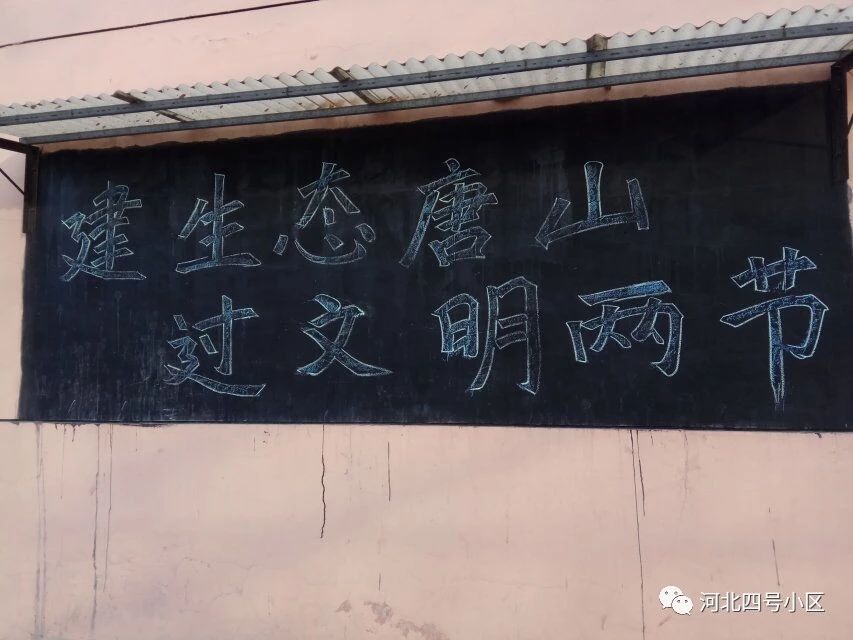 建生态唐山
过文明两节
河北四号小区